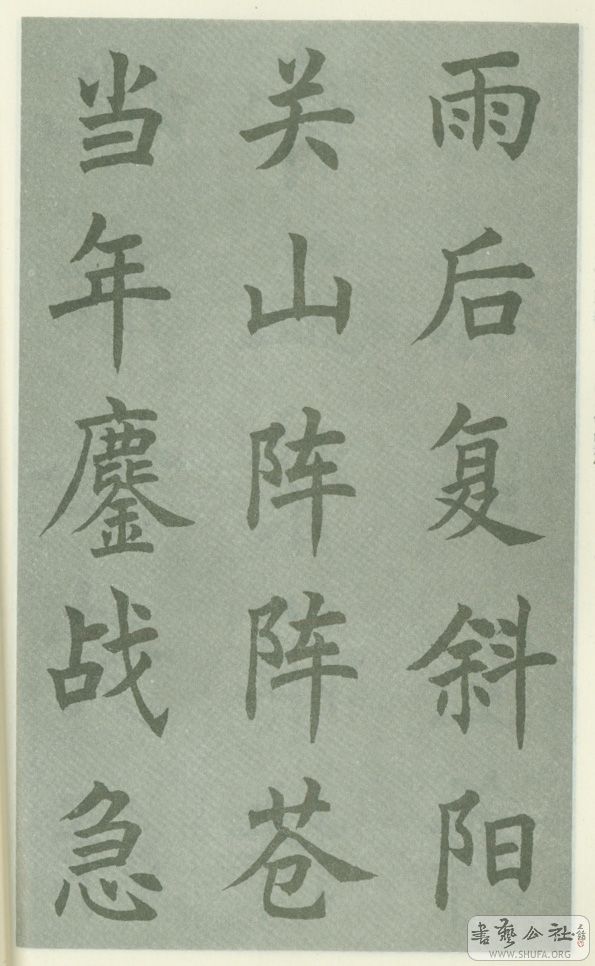 雨后复斜阳
关山阵阵苍
当年鏖战急
書藝公社
WWW.SHUFA.ORG